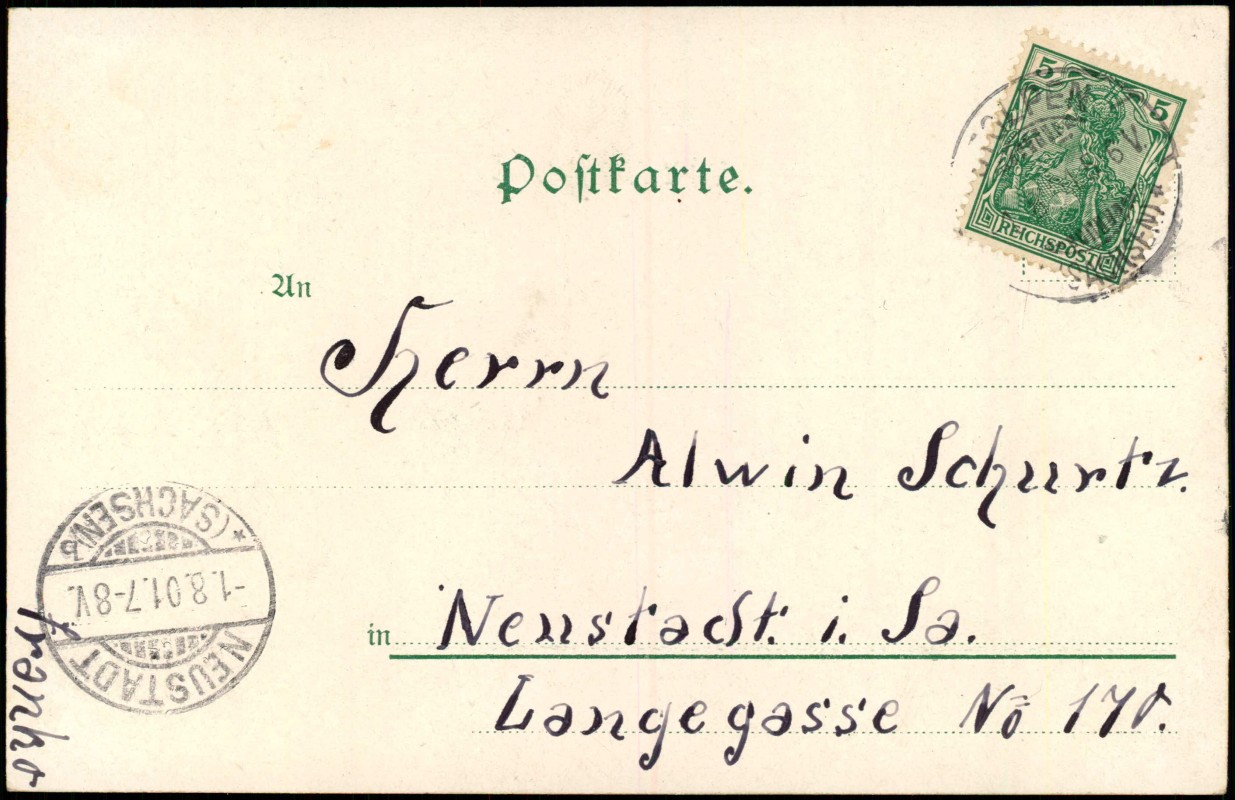 Postkarte.
5 5
REICHSPOST
An
Herrn
Alwin Schurtz.
in Neustadt. i. Sa.
Langegasse Nō
NEUSTADT
-1.8.01.7-8V.
* (SACHSEN) b
franko